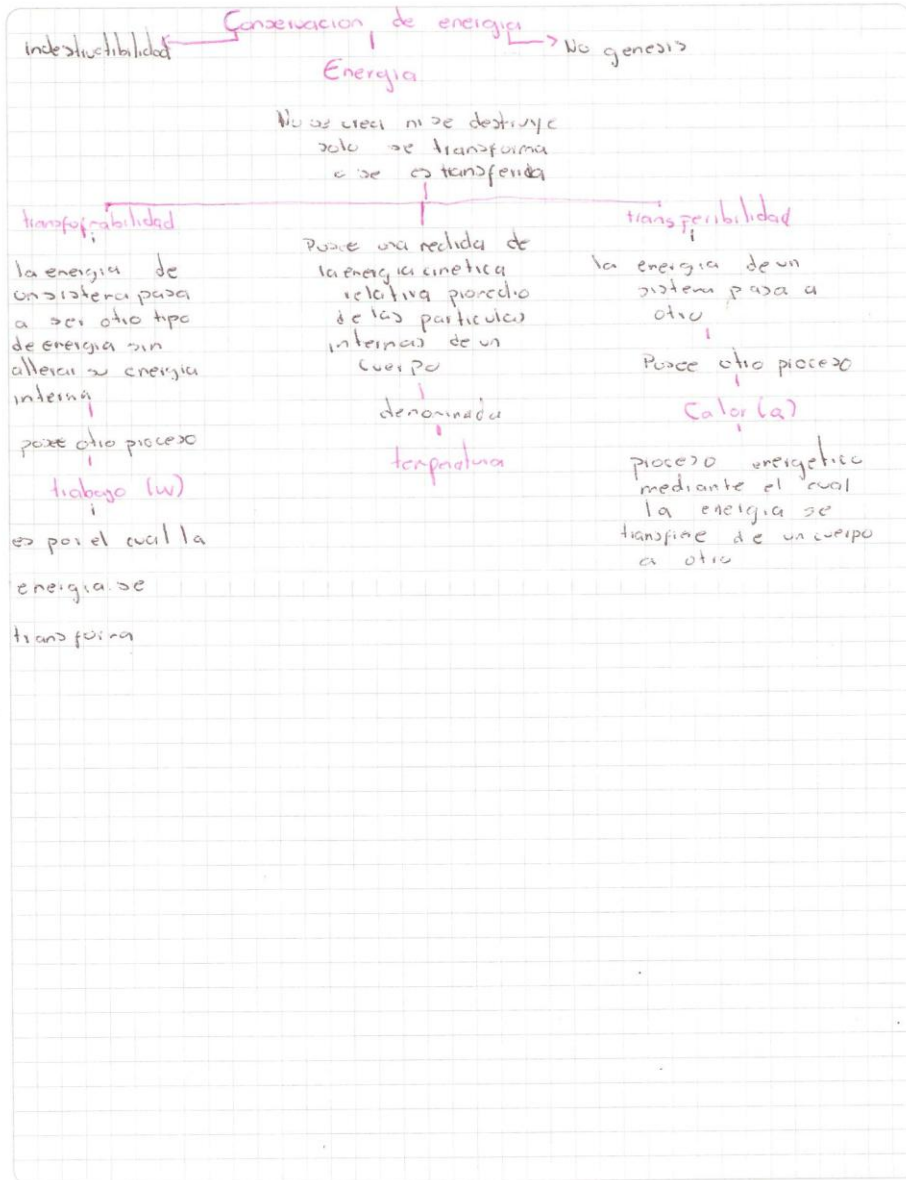 Conservacion de energia
indestructibilidad
No genesis
Energia
No se creci ni se destruye
solo se transforma
o se es transferida
transforcabilidad
la energia de
un sistema pasa
a ser otro tipo
de energia sin
allerar su energia
interna
posee otro proceso
trabajo (w)
es por el cual la
energia se
transforma
Posee una medida de
la energia cinetica
relativa promedio
de las particulas
internas de un
cuerpo
denominada
temperatura
transferibilidad
la energia de un
sistema pasa a
otro
Posee otro proceso
Calor (Q)
proceso energetico
mediante el cual
la energia se
transfiere de un cuerpo
a otro